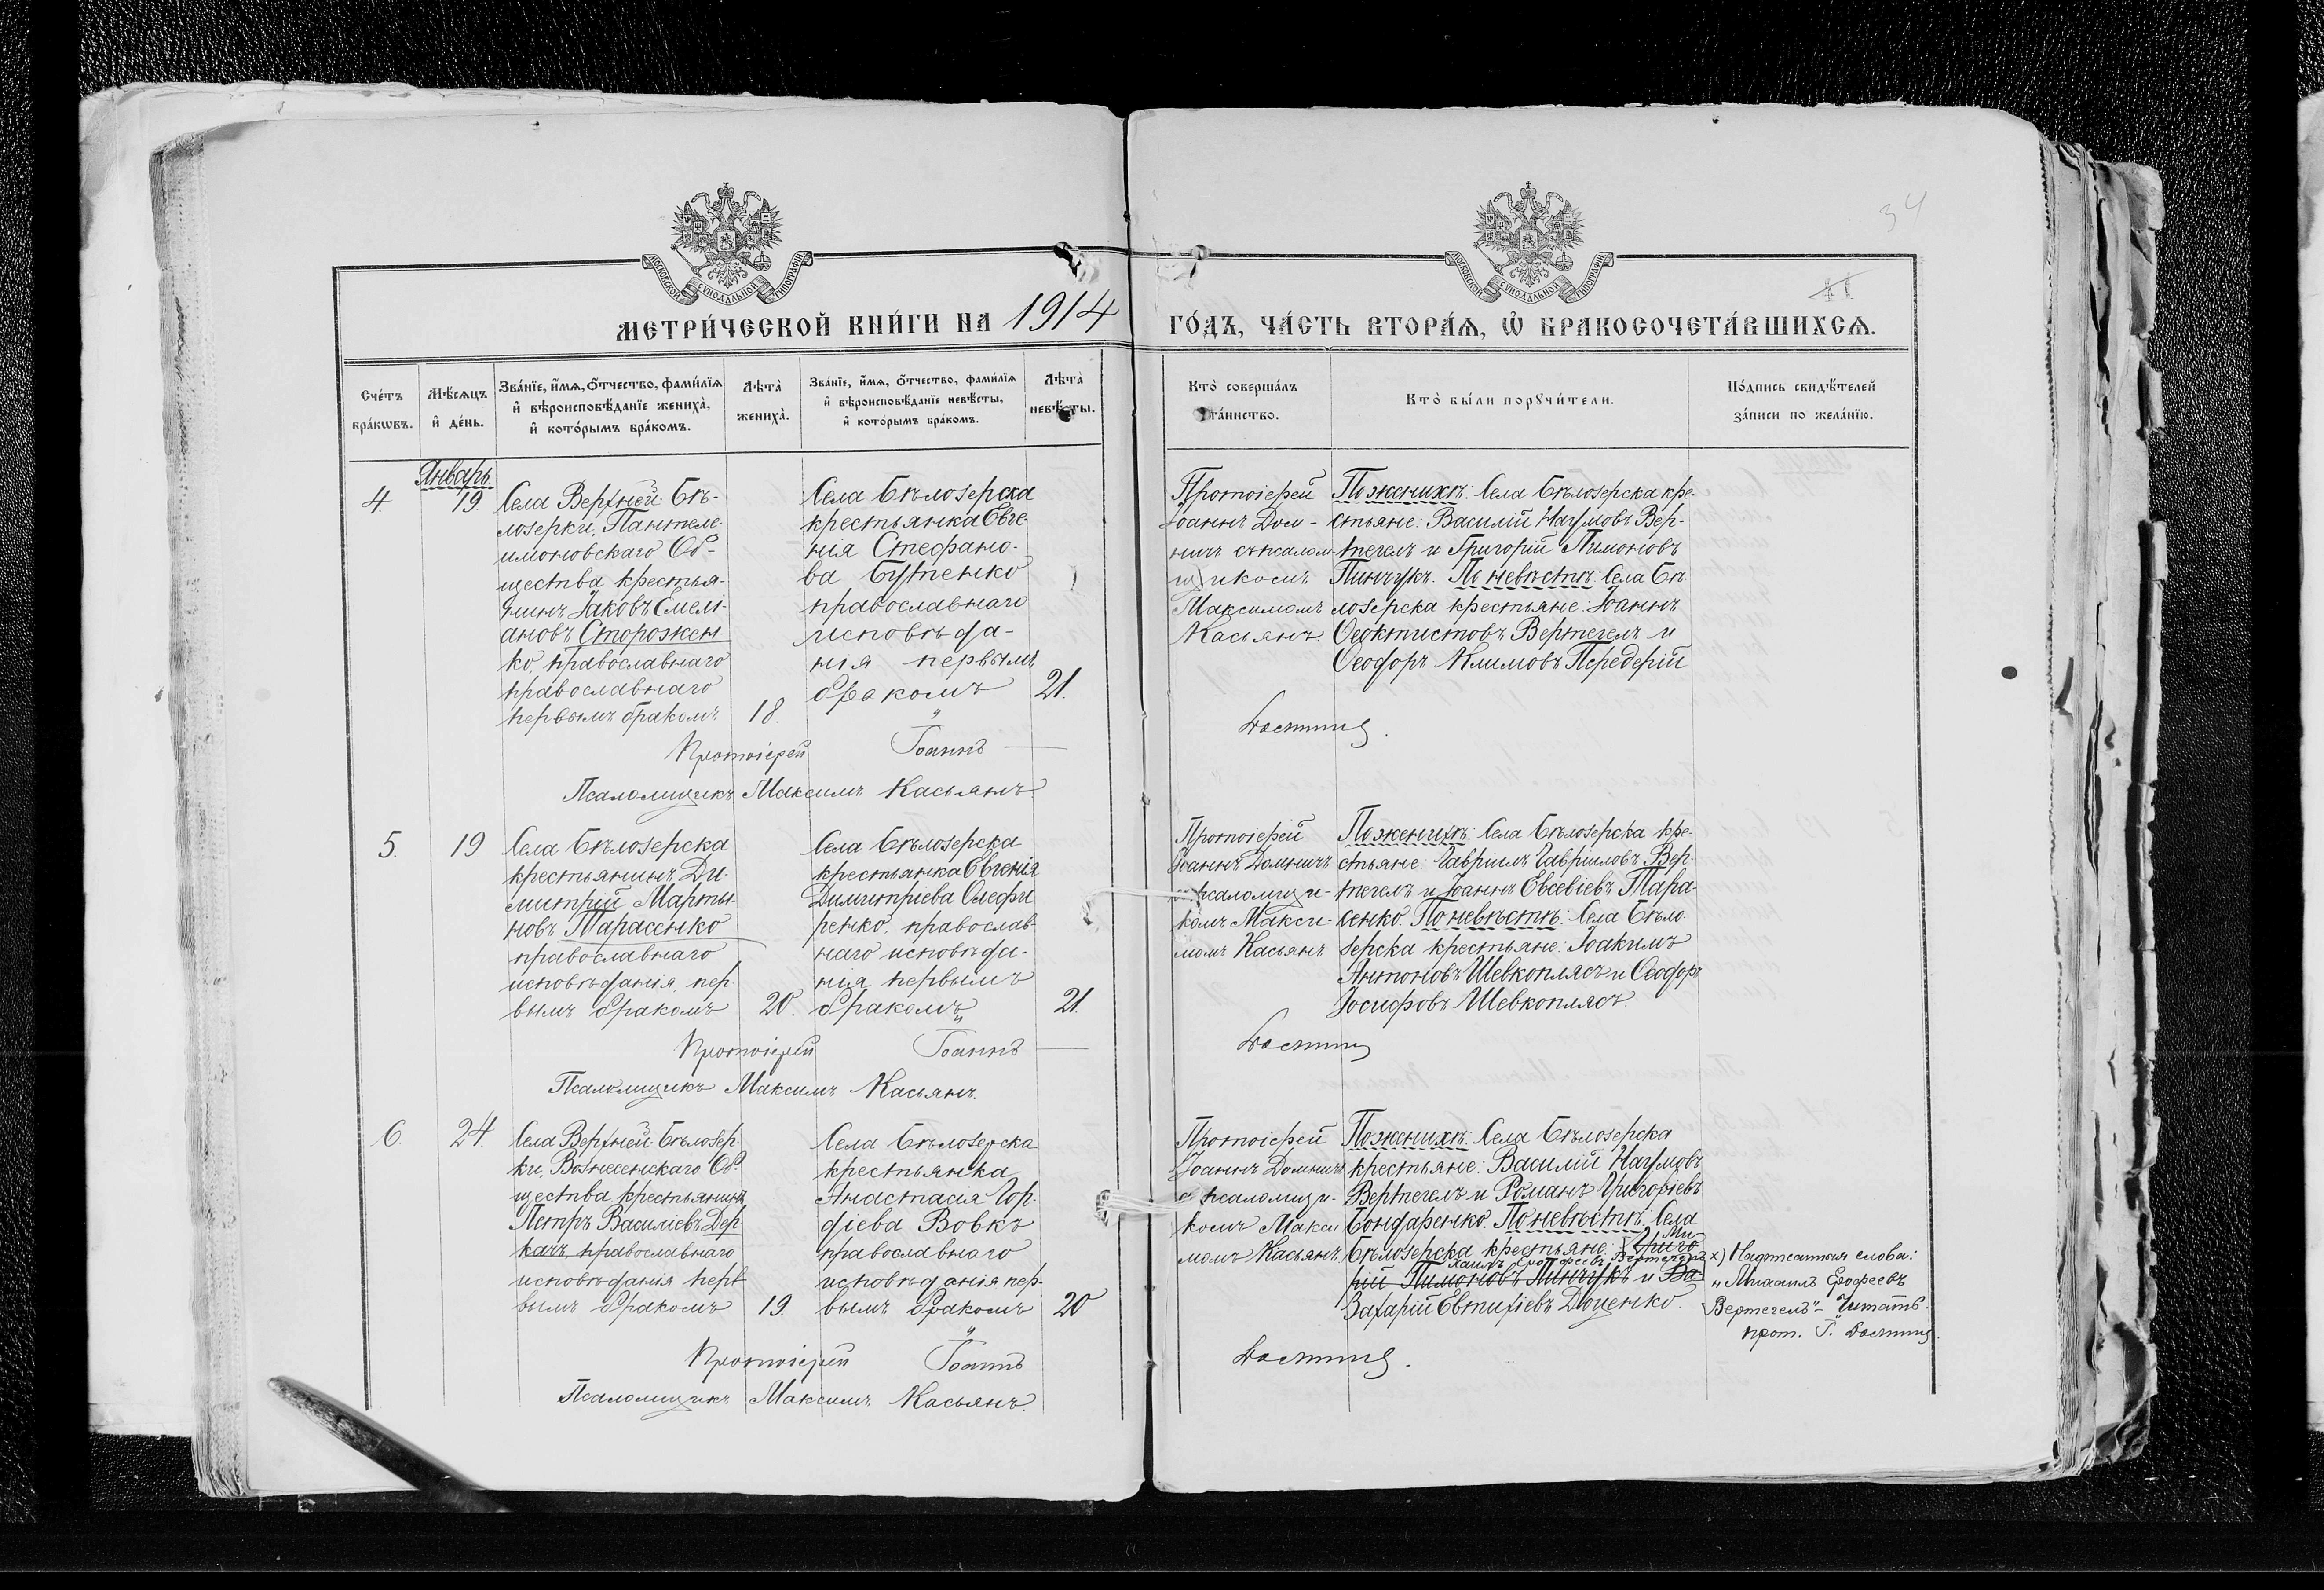 34
11
МОСКОВСКОЙ СѴНОДАЛЬНОЙ ТИПОГРАФІИ
МОСКОВСКОЙ СѴНОДАЛЬНОЙ ТИПОГРАФІИ
МЕТРИ́ЧЕСКОЙ КНИ́ГИ НА 1914 ГО́ДЪ, ЧА́СТЬ ВТОРА́Ѧ, Ѡ҆ БРАКОСОЧЕТА́ВШИХСѦ.
Сче́тъ
бра́кѡвъ.
Мѣ́сѧцъ
и҆ де́нь.
Зва́нїе, и҆́мѧ, ѻ҆́тчество, фами́лїѧ
и҆ вѣроисповѣ́данїе жениха̀,
и҆ кото́рымъ бра́комъ.
Лѣ́та̀
жениха̀.
Зва́нїе, и҆́мѧ, ѻ҆́тчество, фами́лїѧ
и҆ вѣроисповѣ́данїе невѣ́сты,
и҆ кото́рымъ бра́комъ.
Лѣ́та̀
невѣ́сты.
Кто̀ соверша́лъ
та́инство.
Кто̀ бы́ли порꙋчи́тели.
По́дпись свидѣ́телей
за́писи по жела́нїю.
Январь.
4.
19.
Села Верхней Бѣ-
лозерки, Пантеле-
имоновскаго Об-
щества крестья-
нинъ Іаковъ Емелі-
ановъ Сторожен-
ко, православнаго
православнаго
первымъ бракомъ
18.
Села Бѣлозерска
крестьянка Евге-
нія Стефано-
ва Бутенко
православнаго
исповѣда-
нія первымъ
бракомъ
21.
Протоіерей
Іоаннъ Дом-
ничъ съ псалом
щикомъ
Максимомъ
Касьянъ.
По женихѣ: Села Бѣлозерска кре-
стьяне: Василій Наумовъ Вер-
тегелъ и Григорій Пимоновъ
Пинчукъ. По невѣстѣ: Села Бѣ-
лозерска крестьяне: Іоаннъ
Ѳеоктистовъ Вертегелъ и
Ѳеодоръ Климовъ Передерій
Протоіерей Іоаннъ
Псаломщикъ Максимъ Касьянъ.
5.
19
Села Бѣлозерска
крестьянинъ Ди-
митрій Марты-
новъ Тарасенко
православнаго
исповѣданія, пер
вымъ бракомъ
20.
Села Бѣлозерска
крестьянка Евгенія
Димитріева Олефи
ренко, православ-
наго исповѣда-
нія первымъ
бракомъ
21.
Протоіерей
Іоаннъ Домничъ
псаломщи-
комъ Макси-
момъ Касьянъ
По женихѣ: Села Бѣлозерска кре-
стьяне: Гавріилъ Гавриловъ Вер-
тегелъ и Іоаннъ Евсевіевъ Тара-
сенко. По невѣстѣ: Села Бѣло-
зерска крестьяне: Іоакимъ
Антоновъ Шевкоплясъ и Ѳеодоръ
Іосифовъ Шевкоплясъ.
Протоіерей Іоаннъ
Псаломщикъ Максимъ Касьянъ.
6.
24.
Села Верхней Бѣлозер
ки, Вознесенскаго Об-
щества крестьянинъ
Петръ Василіевъ Дер
качъ, православнаго
исповѣданія перв
вымъ бракомъ
19.
Села Бѣлозерска
крестьянка
Анастасія Гор-
діева Вовкъ
православнаго
исповѣданія пер-
вымъ бракомъ
20
Протоіерей
Іоаннъ Домничъ
съ псаломщи-
комъ Макси
момъ Касьянъ
По женихѣ: Села Бѣлозерска
крестьяне: Василій Наумовъ
Вертегелъ и Романъ Григоріевъ
Бондаренко. По невѣстѣ: Села
Бѣлозерска крестьяне: Григо Ми-
хаилъ Ерофеевъ Вертегелъ
рій Пимоновъ Пинчукъ и Ва
Захарій Евтихіевъ Доценко.
x) Надписанныя слова:
„Михаилъ Ерофеевъ
Вертегелъ“ – читать.
прот. І.
Протоіерей Іоаннъ
Псаломщикъ Максимъ Касьянъ.